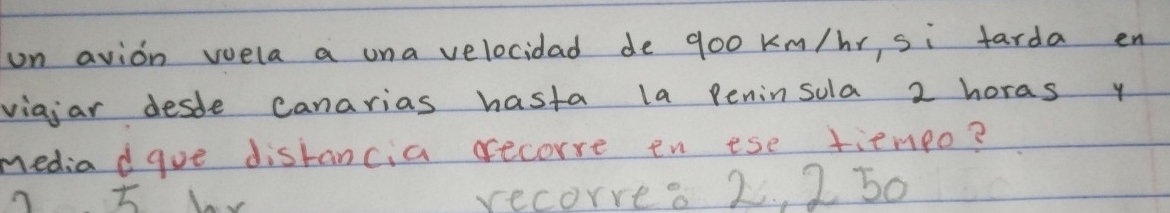 un avión vuela a una velocidad de 900 km/hr, si tarda en
viajar desde canarias hasta la Peninsula 2 horas y
media d que distancia recorre en ese tiempo?
5 hr recorre: 2,250